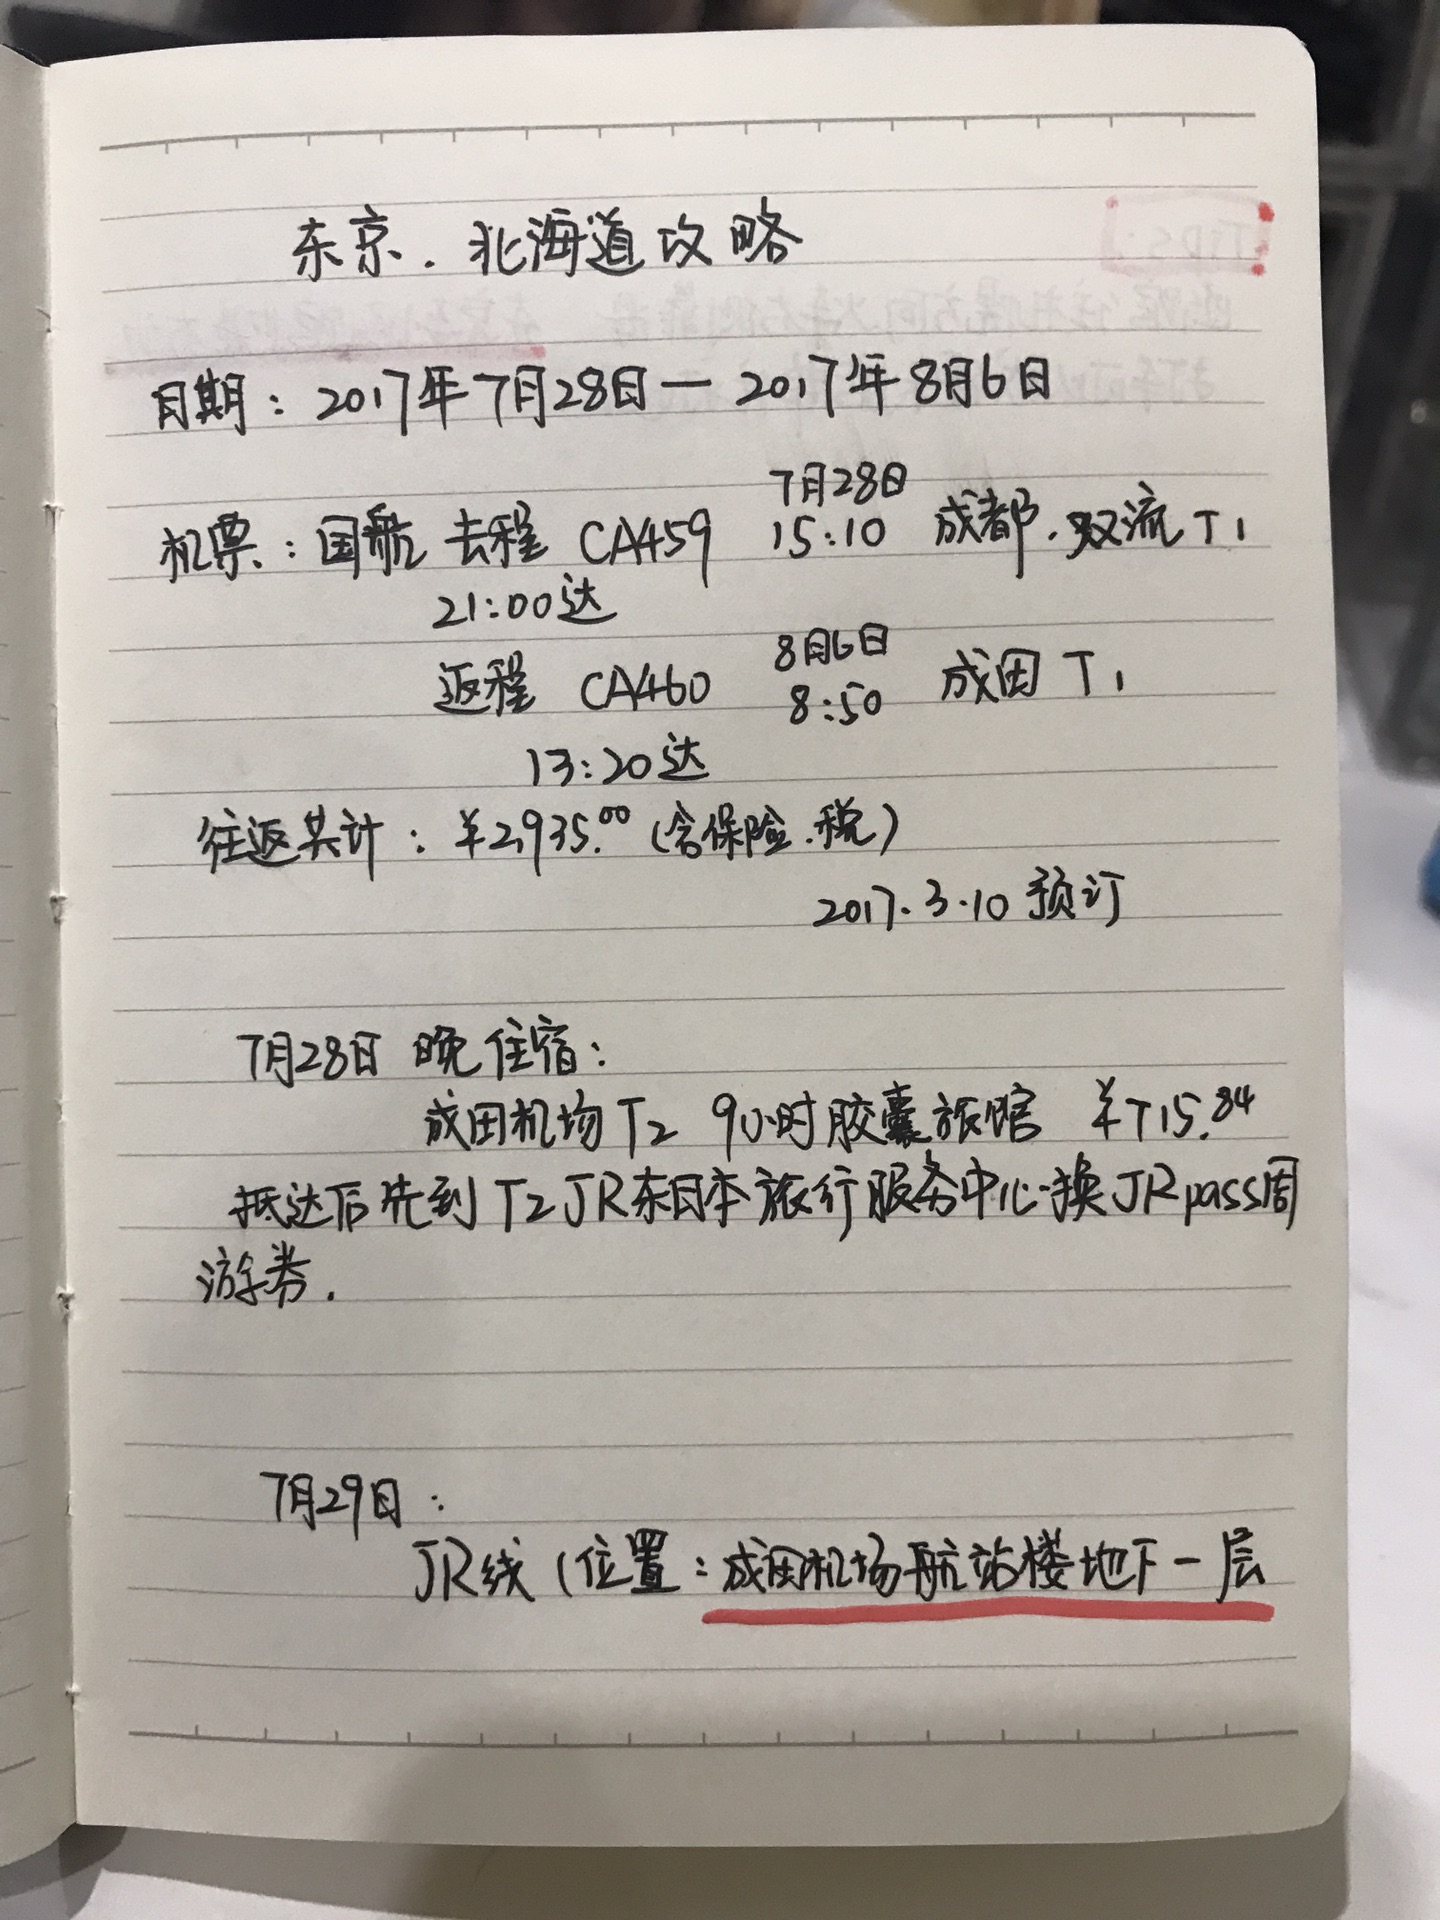 东京.北海道攻略
日期：2017年7月28日—2017年8月6日
机票：国航 去程 CA459 7月28日 15:10 成都.双流T1
21:00达
返程 CA460 8月6日 8:50 成田T1
13:20达
往返共计：¥2,935.00（含保险.税）
2017.3.10预订
7月28日 晚住宿：
成田机场T2 9小时胶囊旅馆 ¥715.84
抵达后先到T2JR东日本旅行服务中心换JRpass周
游券.
7月29日：
JR线（位置：成田机场航站楼地下一层
TiPS：